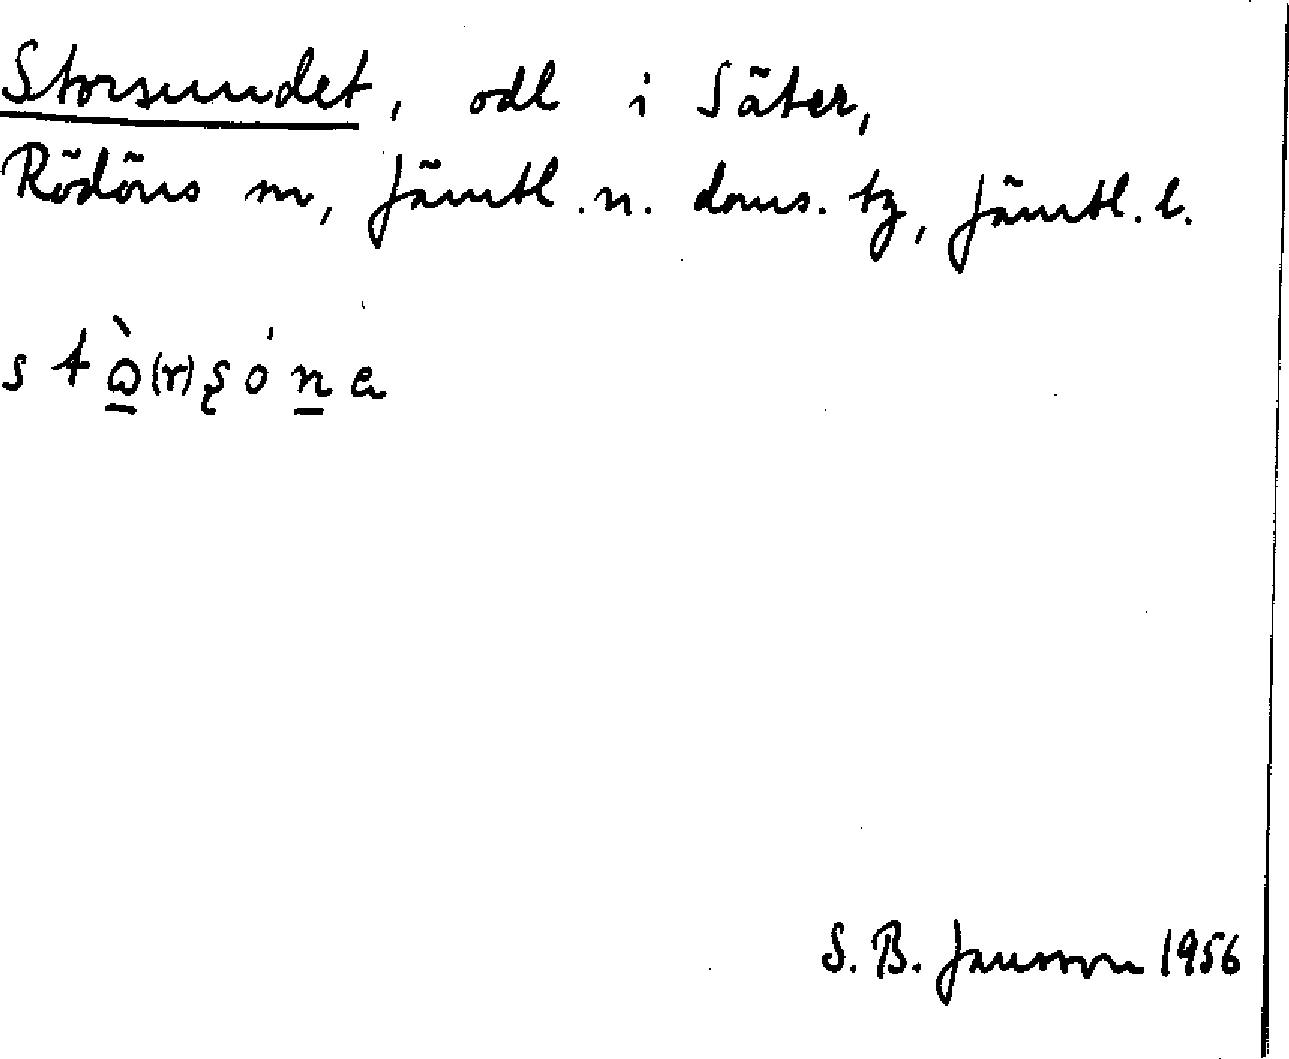 Storsundet, odl i Säter,
Rödöns sn, Jämtl. n. doms. tg, Jämtl. l.
S. B. Jansson 1956